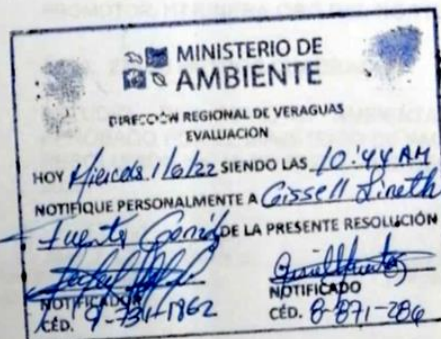 MINISTERIO DE
AMBIENTE
DIRECCIÓN REGIONAL DE VERAGUAS
EVALUACIÓN
HOY Miercols. 1/6/22 SIENDO LAS 10:44 AM
NOTIFIQUE PERSONALMENTE A Gissell Lineth
DE LA PRESENTE RESOLUCIÓN
NOTIFICADOR NOTIFICADO
CÉD. 9-731-1862 CÉD. 8-871-286